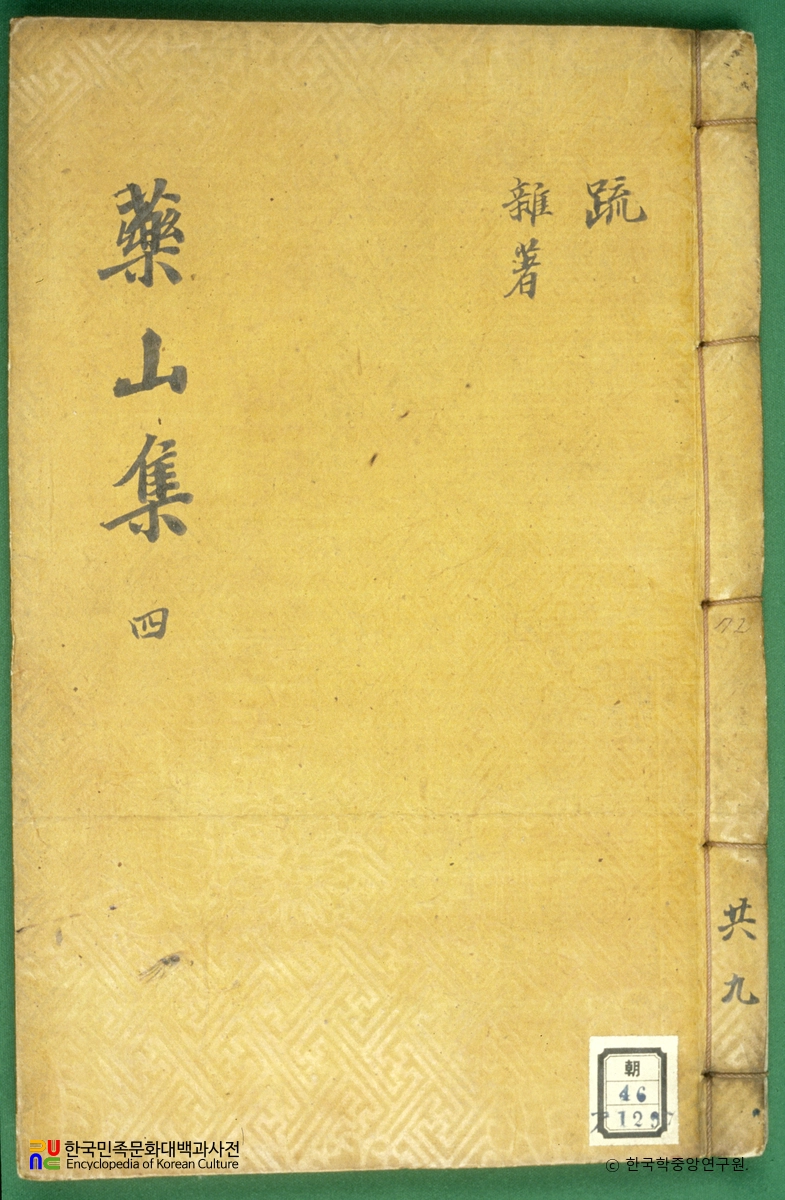 藥山集 四
疏
雜著
共九
朝
46
한국민족문화대백과사전
Encyclopedia of Korean Culture
© 한국학중앙연구원.